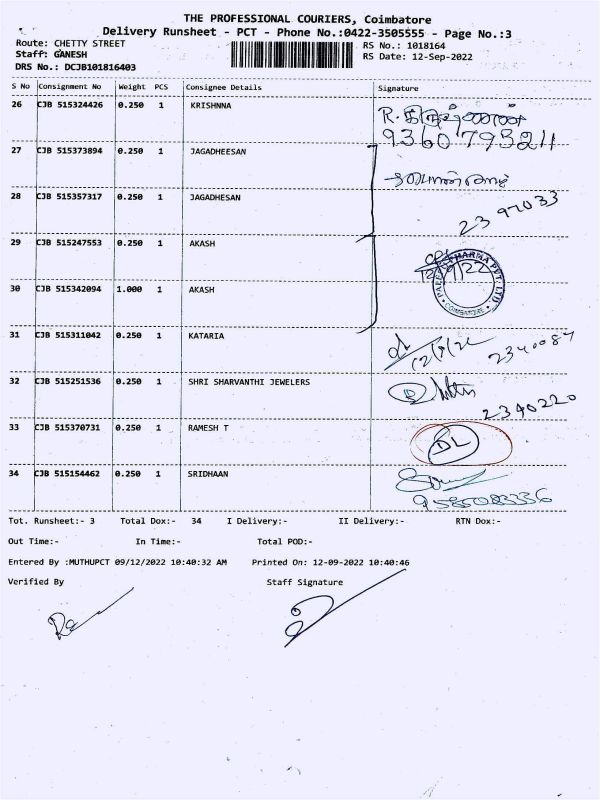 THE PROFESSIONAL COURIERS, Coimbatore
Delivery Runsheet - PCT - Phone No.:0422-3505555 - Page No.:3
Route: CHETTY STREET
RS No.: 1018164
Staff: GANESH
RS Date: 12-Sep-2022
DRS No.: DCJB101816403
S No Consignment No Weight PCS Consignee Details Signature
26 CJB 515324426 0.250 1 KRISHNNA
9360795211
27 CJB 515373894 0.250 1 JAGADHEESAN
28 CJB 515357317 0.250 1 JAGADHESAN
2397033
29 CJB 515247553 0.250 1 AKASH
12/9/22
PHARMA PVT. LTD.
COIMBATORE
30 CJB 515342094 1.000 1 AKASH
31 CJB 515311042 0.250 1 KATARIA
12/9/22 2340087
32 CJB 515251536 0.250 1 SHRI SHARVANTHI JEWELERS
2340220
33 CJB 515370731 0.250 1 RAMESH T
DL
34 CJB 515154462 0.250 1 SRIDHAAN
9585083336
Tot. Runsheet:- 3 Total Dox:- 34 I Delivery:- II Delivery:- RTN Dox:-
Out Time:- In Time:- Total POD:-
Entered By :MUTHUPCT 09/12/2022 10:40:32 AM Printed On: 12-09-2022 10:40:46
Verified By Staff Signature